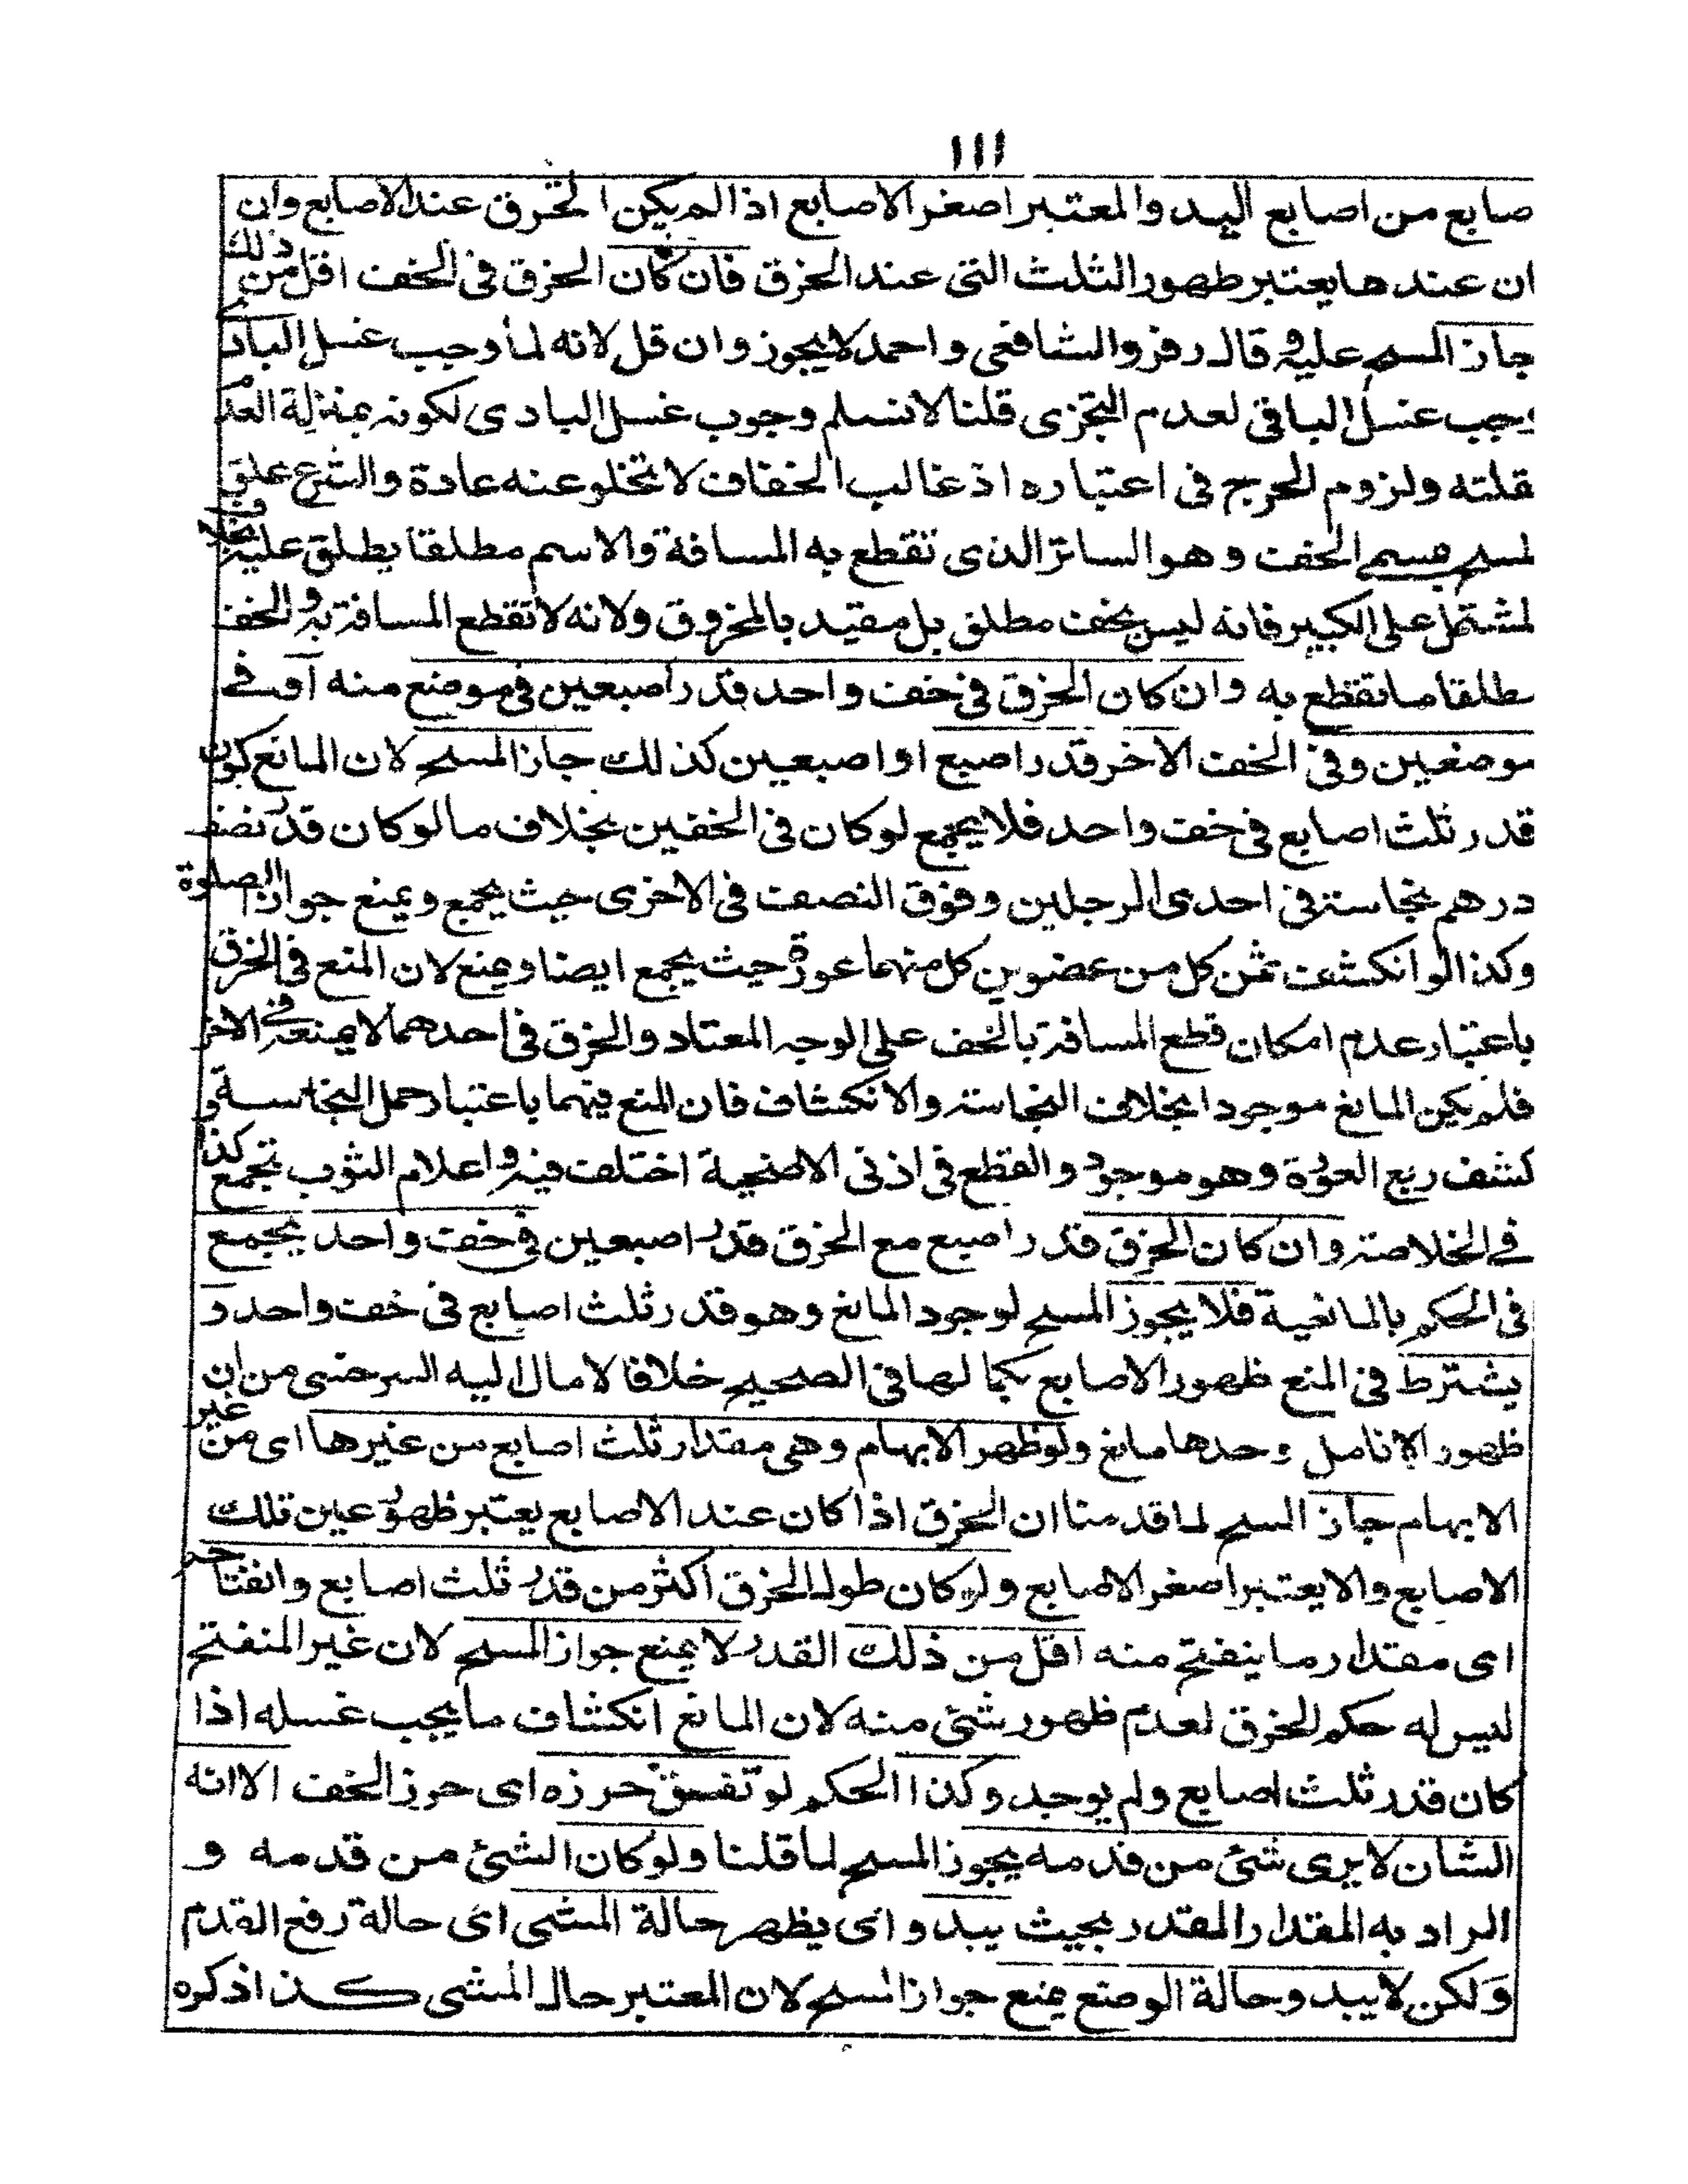 ١١١
صابع من اصابع اليد والمعتبر اصغر الاصابع اذا لم يكن الخرق عند الاصابع وان
ان عندها يعتبر ظهور الثلث التى عند الخرق فان كان الخرق فى الخف اقل من ذلك
جاز المسح عليه وقال زفر والشافعى واحمد لا يجوز وان قل لانه لما وجب غسل البادى
وجب غسل الباقى لعدم التجزى قلنا لا نسلم وجوب غسل البادى لكونه بمنزلة العدم
قلته ولزوم الحرج فى اعتباره اذ غالب الخفاف لا تخلو عنه عادة والشرع علق
لمسح بمسمى الخف وهو الساتر الذى تقطع به المسافة والاسم مطلقا يطلق عليه بخلاف
لمشتمل على الكبير فانه ليس بخف مطلق بل مقيد بالمخروق ولانه لا تقطع المسافة به والخف
مطلقا ما تقطع به وان كان الخرق فى خف واحد قدر اصبعين فى موضع منه او فى
موضعين وفى الخف الاخر قدر اصبع او اصبعين كذلك جاز المسح لان المانع كون
قدر ثلث اصابع فى خف واحد فلا يجمع لو كان فى الخفين بخلاف ما لو كان قدر نصف
درهم نجاسة فى احدى الرجلين وفوق النصف فى الاخرى حيث يجمع ويمنع جواز الصلوة
وكذا لو انكشف ثمن كل من عضوين كل منهما عورة حيث يجمع ايضا ويمنع لان المنع فى الخرق
باعتبار عدم امكان قطع المسافة بالخف على الوجه المعتاد والخرق فى احدهما لا يمنعه فى الاخر
فلم يكن المانع موجودا بخلاف النجاسة والانكشاف فان المنع فيهما باعتبار حمل النجاسة و
كشف ربع العورة وهو موجود والقطع فى اذنى الاضحية اختلف فيه واعلام الثوب تجمع كذا
فى الخلاصة وان كان الخرق قدر اصبع مع الخرق قدر اصبعين فى خف واحد يجمع
فى الحكم بالمانعية فلا يجوز المسح لوجود المانع وهو قدر ثلث اصابع فى خف واحد و
يشترط فى المنع ظهور الاصابع بكمالها فى الصحيح خلافا لما مال اليه السرخسى من ان
ظهور الانامل وحدها مانع ولو ظهر الابهام وهى مقدار ثلث اصابع من غيرها اى من غير
الابهام جاز المسح لما قدمنا ان الخرق اذا كان عند الاصابع يعتبر ظهور عين تلك
الاصابع والا يعتبر اصغر الاصابع ولو كان طول الخرق اكثر من قدر ثلث اصابع وانفتاحه
اى مقدار ما ينفتح منه اقل من ذلك القدر لا يمنع جواز المسح لان غير المنفتح
ليس له حكم الخرق لعدم ظهور شئ منه لان المانع انكشاف ما يجب غسله اذا
كان قدر ثلث اصابع ولم يوجد وكذا الحكم لو تفسق خرزه اى خرز الخف الا انه
الشان لا يرى شئ من قدمه يجوز المسح لما قلنا ولو كان الشئ من قدمه و
المراد به المقدار المقدر بحيث يبدو اى يظهر حالة المشى اى حالة رفع القدم
ولكن لا يبدو حالة الوضع يمنع جواز المسح لان المعتبر حال المشى كذا ذكره